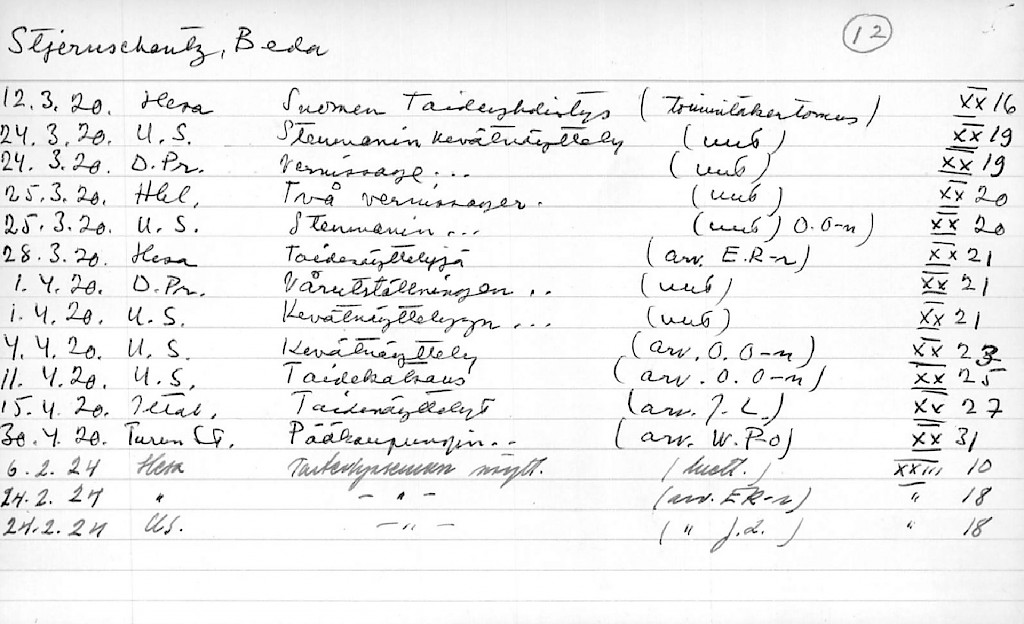 12
Stjernschantz, Beda
12.3.20. Hesa Suomen Taideyhdistys (toimintakertomus) XX 16
24.3.20. U.S. Stenmanin kevätnäyttely (uut) XX 19
24.3.20. D.Pr. Vernissage... (uut) XX 19
25.3.20. Hbl. Två vernissager. (uut) XX 20
25.3.20. U.S. Stenmanin... (uut) O.O-n) XX 20
28.3.20. Hesa Taidenäyttelyjä (arv. E.R-r) XX 21
1.4.20. D.Pr. Vårutställningen.. (uut) XX 21
1.4.20. U.S. Kevätnäyttelyyn... (uut) XX 21
4.4.20. U.S. Kevätnäyttely (arv. O.O-n) XX 23
11.4.20. U.S. Taidekatsaus (arv. O.O-n) XX 25
15.4.20. Iltal. Taidenäyttelyt (arv. J.L.) XX 27
30.4.20. Turun S. Pääkaupungin.. (arv. W.P-o) XX 31
6.2.24 Hesa näytt. (luett.) XXIII 10
24.2.24 " - " - (arv. E.R-r) " 18
24.2.24 US. - " - (" J.L.) " 18